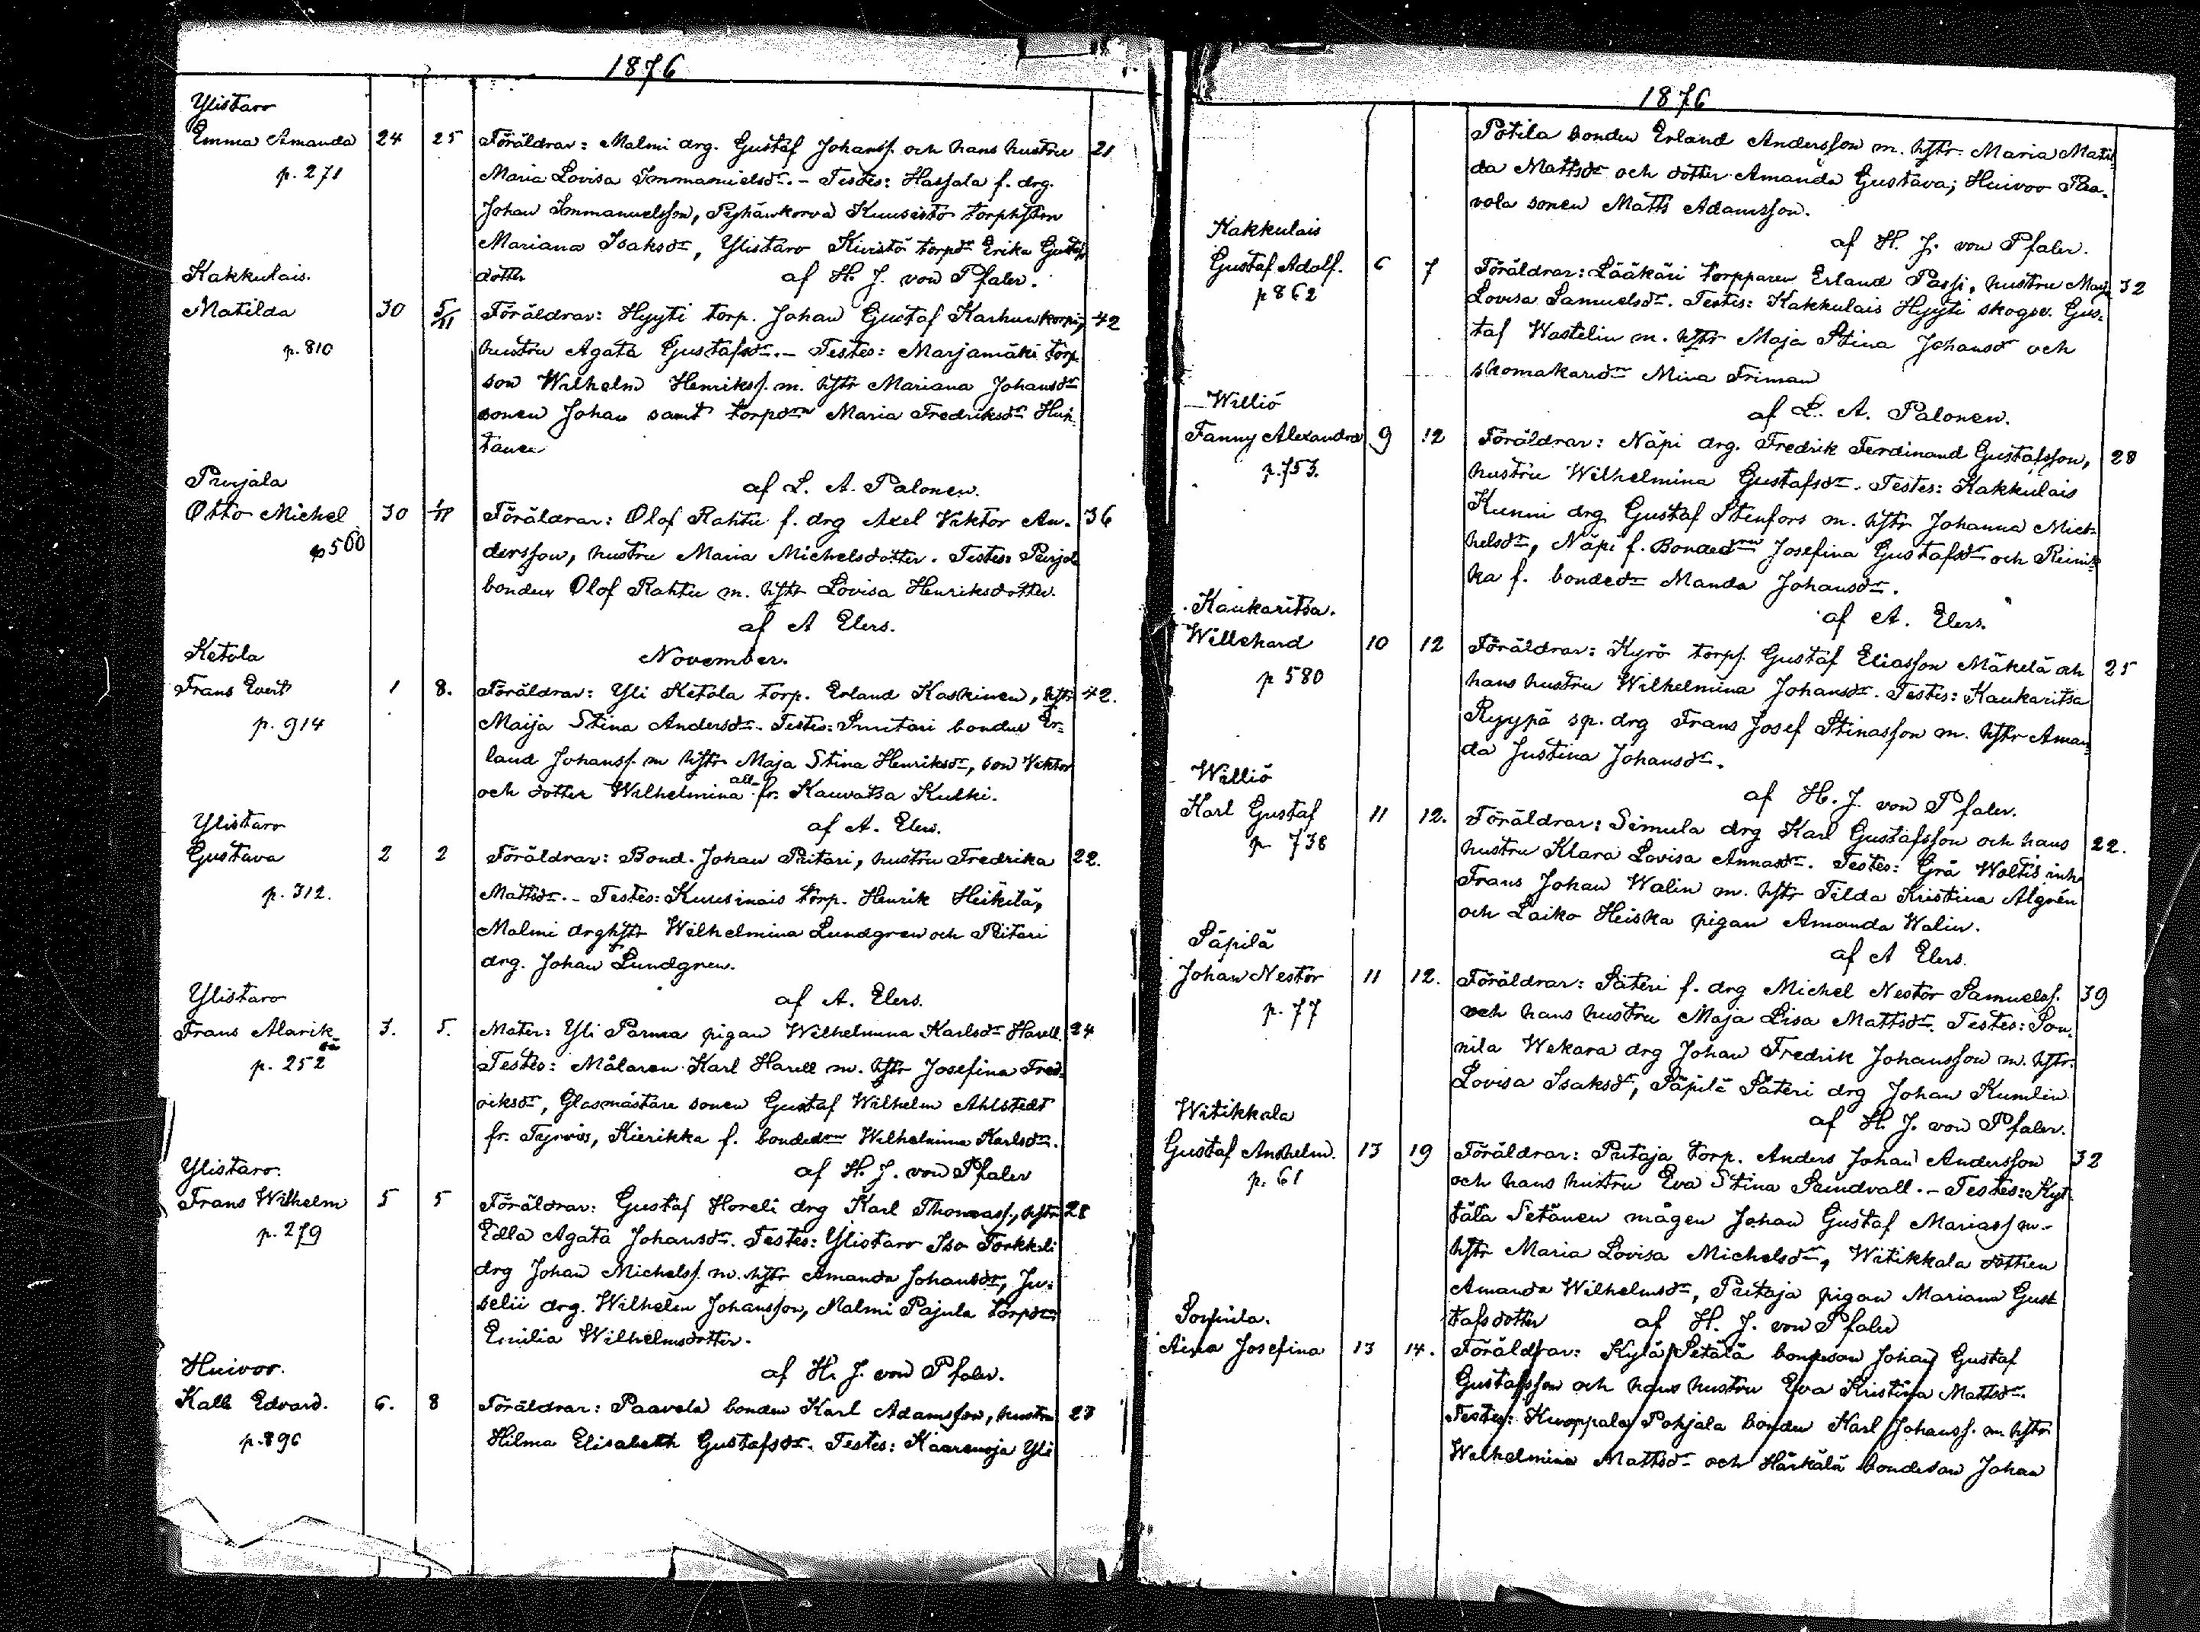 1876
Ylistaro
Emma Amanda 24 25 Föräldrar: Malmi drg. Gustaf Johanss. och hans hustru 21
p. 271 Maria Lovisa Immanuelsdr. - Testes: Hassala f. drg.
Johan Immanuelsson, Peghäwkorva Kuusisto torphstrn
Mariana Isaksdr, Ylistaro Kivistö torpdr Erika Gustafs
Kakkulais. dotter af H. J. von Pfaler.
Matilda 30 5/11 Föräldrar: Hyyti torp. Johan Gustaf Karhunkorpi, 42
p. 810 hustru Agata Gustafsdr. - Testes: Marjamäki torp
son Wilhelm Henrikss. m. hstr Mariana Johansdr
sonen Johan samt torpdrn Maria Fredriksdr Huh-
tanen
Purjala af L. A. Palonen.
Otto Michel 30 1/11 Föräldrar: Olof Rahtu f. drg Axel Viktor An- 36
p 560 dersson, hustru Maria Michelsdotter. Testes: Purjala
bonden Olof Rahtu m. hstr Lovisa Henriksdotter
af A Elers.
Ketola November.
Frans Evert 1 8. Föräldrar: Yli Ketola torp. Erland Koskinen, hstr 42.
p. 914 Maija Stina Andersdr. Testes: Suutari bonden Er-
land Johanss. m hstr Maja Stina Henriksdr, son Viktor
och dotter Wilhelmina all. fr. Kauvatsa Kulki.
Ylistaro af A. Elers.
Gustava 2 2 Föräldrar: Bond. Johan Piitari, hustru Fredrika 22.
p. 312. Mattsdr. - Testes: Kuusinais torp. Henrik Heikilä,
Malmi drghstr Wilhelmina Lundgren och Piitari
drg. Johan Lundgren.
Ylistaro af A. Elers.
Frans Alarik 3. 5. Mater: Yli Parma pigan Wilhelmina Karlsdr Harell. 24
p. 252 Testes: Målaren Karl Harell m. hstr Josefina Fred-
riksdr, Glasmästare sonen Gustaf Wilhelm Ahlstedt
fr. Tyrvis, Kierikka f. bondedrn Wilhelmina Karlsdr.
Ylistaro. af H. J. von Pfaler
Frans Wilhelm 5 5 Föräldrar: Gustaf Horeli drg Karl Thomass., hstr 28
p. 279 Edla Agata Johansdr. Testes: Ylistaro Iso Torkkeli
drg Johan Michelss. m. hstr Amanda Johansdr, Ju-
selii drg. Wilhelm Johansson, Malmi Pajula torpdr
Emilia Wilhelmsdotter.
Huivoo. af H. J. von Pfaler.
Kalle Edvard. 6. 8 Föräldrar: Paavola bonden Karl Adamsson, hustru 23
p. 896 Hilma Elisabeth Gustafsdr. Testes: Kaarenoja Yli
1876
Potila bonden Erland Andersson m. hstr. Maria Matil-
da Mattsdr och dotter Amanda Gustava; Huivoo Paa-
vola sonen Matts Adamsson.
Kakkulais af H. J. von Pfaler.
Gustaf Adolf. 6 7 Föräldrar: Lääkäri torpparen Erland Passi, hustru Maja 32
p 862 Lovisa Samuelsdr. Testes: Kakkulais Hyyti skogsv. Gus-
taf Wastelin m. hstr Maja Stina Johansdr och
skomakaredr Mina Friman
Williö af L. A. Palonen.
Fanny Alexandra 9 12 Föräldrar: Näpi drg. Fredrik Ferdinand Gustafsson, 28
p. 753. hustru Wilhelmina Gustafsdr. Testes: Kakkulais
Kunni drg Gustaf Stenfors m. hstr Johanna Mich-
helsdr, Näpi f. Bondedrn Josefina Gustafsdr och Reinik-
ka f. bondedr Manda Johansdr.
Kaukaritsa. af A. Elers.
Willehard 10 12 Föräldrar: Kyrö torps. Gustaf Eliasson Mäkelä och 25
p 580 hans hustru Wilhelmina Johansdr. Testes: Kaukaritsa
Ryypä sp. drg Frans Josef Stinasson m. hstr Aman
da Justina Johansdr.
Williö af H. J. von Pfaler.
Karl Gustaf 11 12. Föräldrar: Simula drg Karl Gustafsson och hans 22.
p. 738 hustru Klara Lovisa Annasdr. Testes: Grå Woltis inh.
Frans Johan Walin m. hstr Tilda Kristina Algrén
och Laiko Heiska pigan Amanda Walin.
Säpilä af A Elers.
Johan Nestor 11 12. Föräldrar: Säteri f. drg Michel Nestor Samuelss. 39
p. 77 och hans hustru Maja Lisa Mattsdr. Testes: Son-
nila Wekara drg Johan Fredrik Johansson m. hstr.
Lovisa Isaksdr, Säpilä Säteri drg Johan Kumlin
Witikkala af H. J. von Pfaler.
Gustaf Anshelm. 13 19 Föräldrar: Putaja torp. Anders Johan Andersson 32
p. 61 och hans hustru Eva Stina Sundvall. - Testes: Kyt-
tälä Setänen mågen Johan Gustaf Mariass m.
hstr Maria Lovisa Michelsdr, Witikkala dottren
Amanda Wilhelmsdr, Putaja pigan Mariana Gust
Sonnila. tafsdotter af H. J. von Pfaler
Aina Josefina 13 14. Föräldrar: Kylä Setälä bondeson Johan Gustaf
Gustafsson och hans hustru Eva Kristina Mattsdr.
Testes: Kuoppala Pohjala bonden Karl Johanss. m. hstr
Wilhelmina Mattsdr och Härkälä bondeson Johan